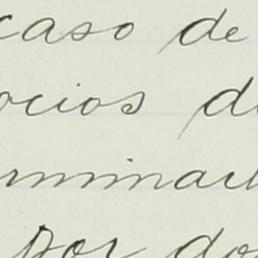 caso de
ocios d
rmina
por do